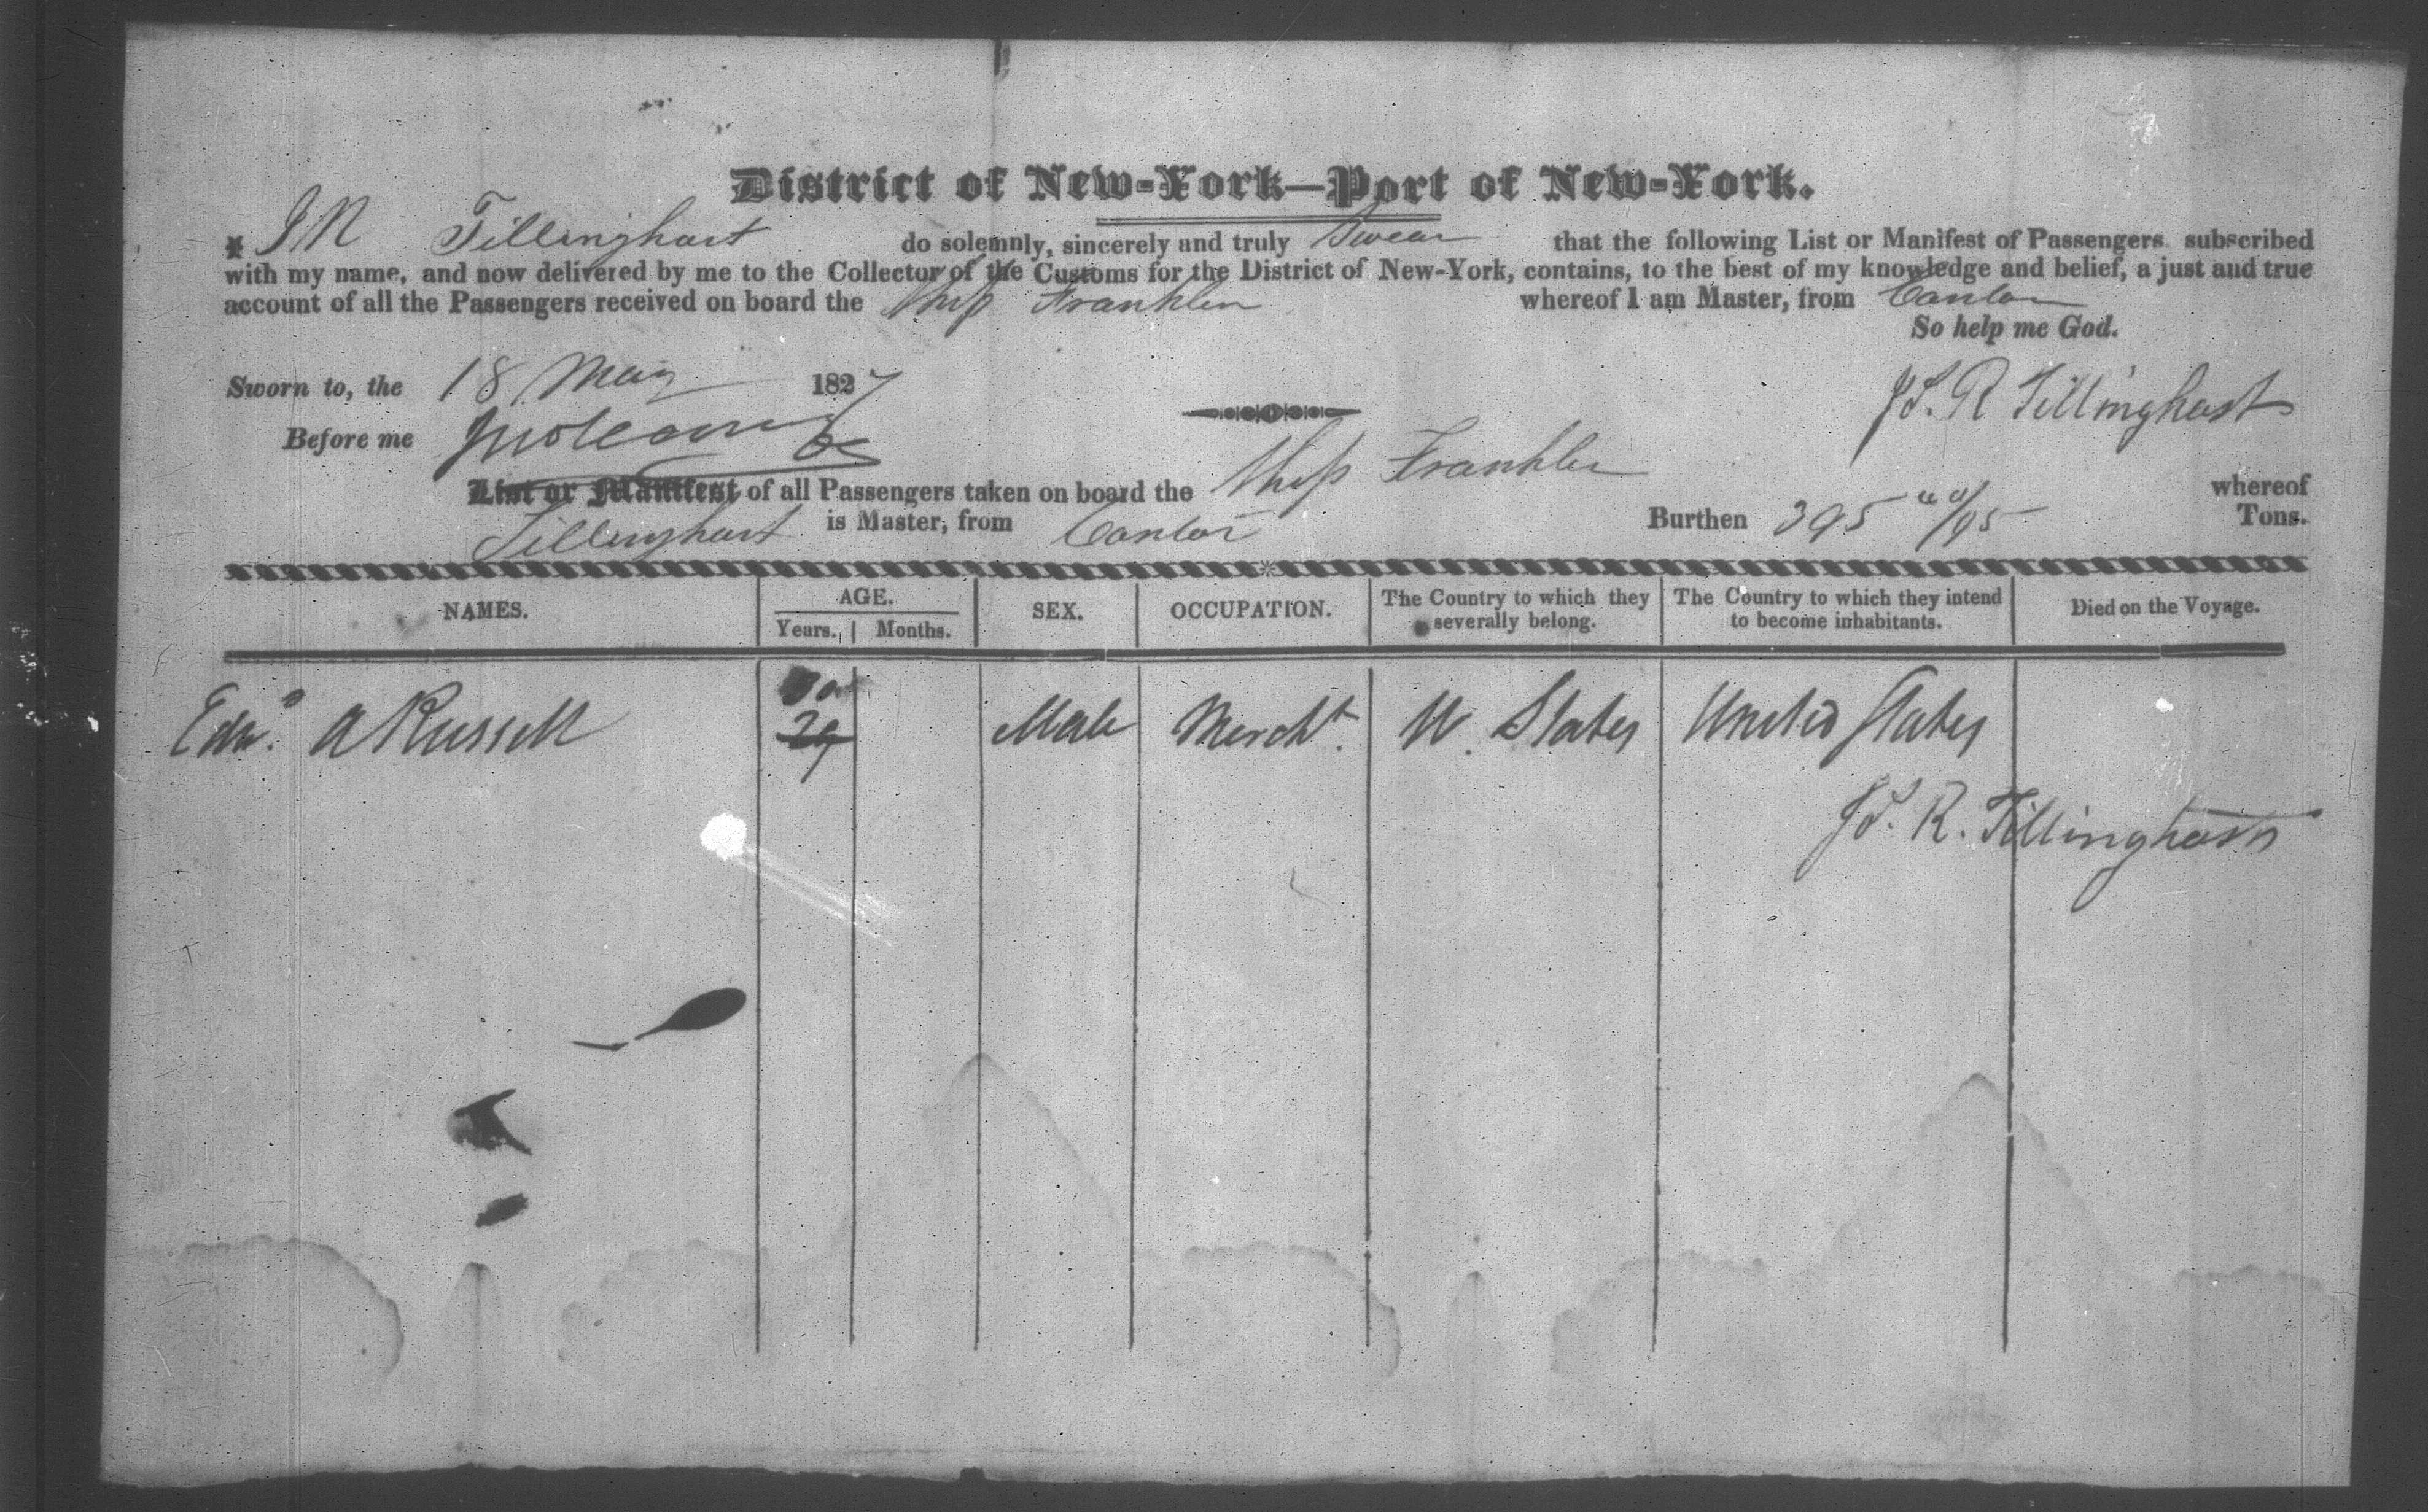 District of New-York—Port of New-York.
I R Tillinghast do solemnly, sincerely and truly Swear that the following List or Manifest of Passengers subscribed
with my name, and now delivered by me to the Collector of the Customs for the District of New-York, contains, to the best of my knowledge and belief, a just and true
account of all the Passengers received on board the Ship Franklin whereof I am Master, from Canton
So help me God.
Sworn to, the 18 May 1827
Before me
R Tillinghast
List or Manifest of all Passengers taken on board the Ship Franklin whereof
Tillinghast is Master, from Canton Burthen 395 /95 Tons.
NAMES. AGE. Years. Months. SEX. OCCUPATION. The Country to which they severally belong. The Country to which they intend to become inhabitants. Died on the Voyage.
30
Edwd. A Russell 29 Male Mercht. U. States United States
R. Tillinghast